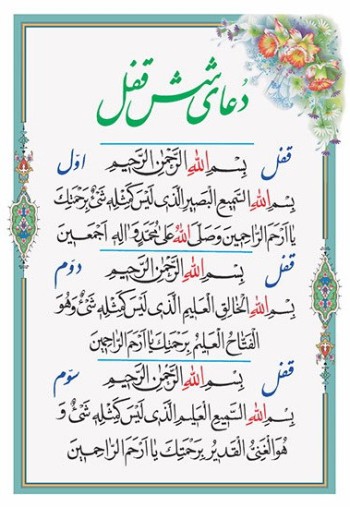 دعای شش قفل
قفل اوّل
بِسْمِ اللهِ الرَّحْمٰنِ الرَّحيمِ
بِسْمِ اللهِ السَّمیعِ الْبَصیرِ الَّذی لَیْسَ کَمِثْلِهِ شَیْءٌ بِرَحْمَتِكَ
یا اَرْحَمَ الرّاحِمینَ وَصَلَّ اللهُ عَلی مُحَمَّدٍ وَ الِهِ اَجْمَعینَ
قفل دوّم
بِسْمِ اللهِ الرَّحْمٰنِ الرَّحيمِ
بِسْمِ اللهِ الْخالِقِ الْعَلیمِ الَّذی لَیْسَ کَمِثْلِهِ شَیْءٌ وَهُوَ
الْفَتّاحُ الْعَلیمُ بِرَحْمَتِكَ یا اَرْحَمَ الرّاحِمینَ
قفل سوّم
بِسْمِ اللهِ الرَّحْمٰنِ الرَّحيمِ
بِسْمِ اللهِ السَّمیعِ الْعَلیمِ الَّذی لَیْسَ کَمِثْلِهِ شَیْءٌ وَ
هُوَ الْغَنِیُّ الْقَدیرُ بِرَحْمَتِكَ یا اَرْحَمَ الرّاحِمینَ